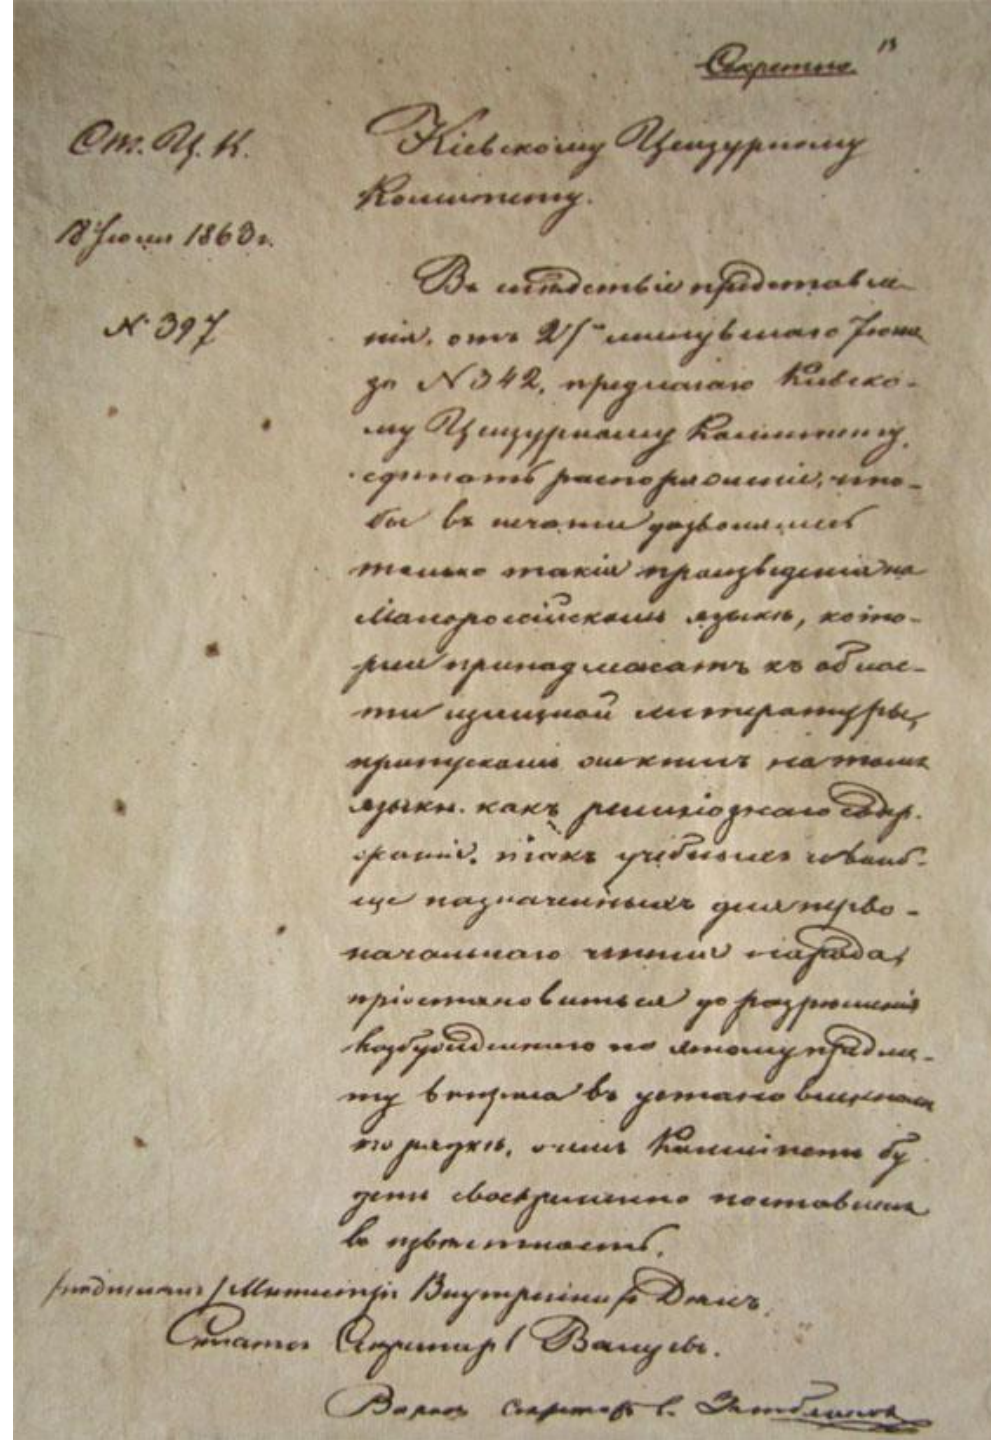 Секретно.
Ст. Ц. К.
Кіевскому Цензурному
Комитету.
18 Июля 1863 г.
№ 397
Въ слѣдствіе представле-
нія, отъ 27 минувшаго Іюня
за № 342, предлагаю Кіевско-
му Цензурному Комитету,
сдѣлать распоряженіе, что-
бы въ печати дозволялись
только такія произведенія на
Малороссійскомъ языкѣ, кото-
рыя принадлежатъ къ облас-
ти изящной литературы,
пропускомъ же книгъ на томъ
языкѣ, какъ религіознаго содер-
жанія, такъ учебныхъ и вооб-
ще назначенныхъ для перво-
начальнаго чтенія народа,
пріостановиться до разрѣшенія
возбужденнаго по этому предме-
ту вопроса въ установленномъ
порядкѣ, о чемъ Комитетъ бу
детъ своевременно поставленъ
въ извѣстность.
Подписалъ / Министръ Внутреннихъ Дѣлъ,
Статсъ Секретарь Валуевъ.
Вѣрно: Секретарь